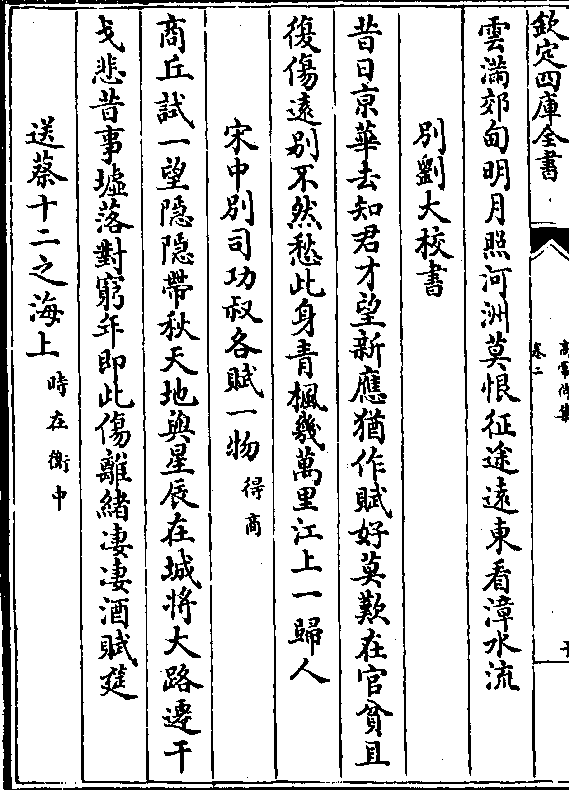 欽定四庫全書
卷二
雲滿郊甸明月照河洲莫恨征途遠東看漳水流
別劉大校書
昔日京華去知君才望新應猶作賦好莫歎在官貧且
復傷遠別不然愁此身青楓幾萬里江上一歸人
宋中別司功叔各賦一物 得商
商丘試一望隱隱帶秋天地與星辰在城將大路遷干
戈悲昔事墟落對窮年即此傷離緒凄凄酒賦筵
送蔡十二之海上 時在衛中